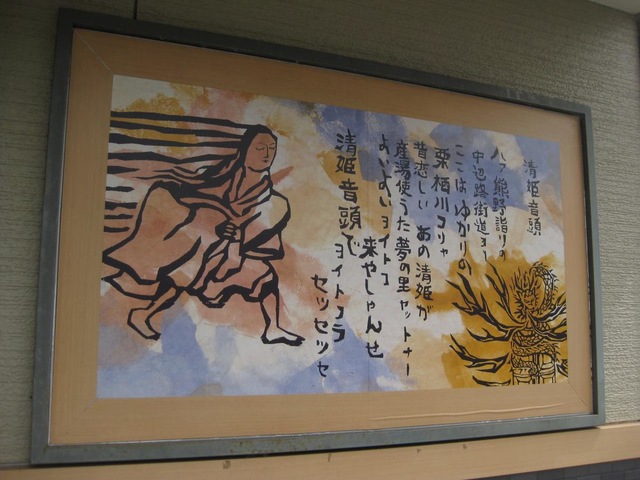 清姫音頭
ハァ 熊野詣りの
中辺路街道ヨー
ここはゆかりの
栗栖川コリャ
昔恋しい あの清姫が
産湯使うた夢の里ヤットナー
よいよいヨイトコ
来やしゃんせ
清姫音頭で ヨイトコラ
セッセッセ